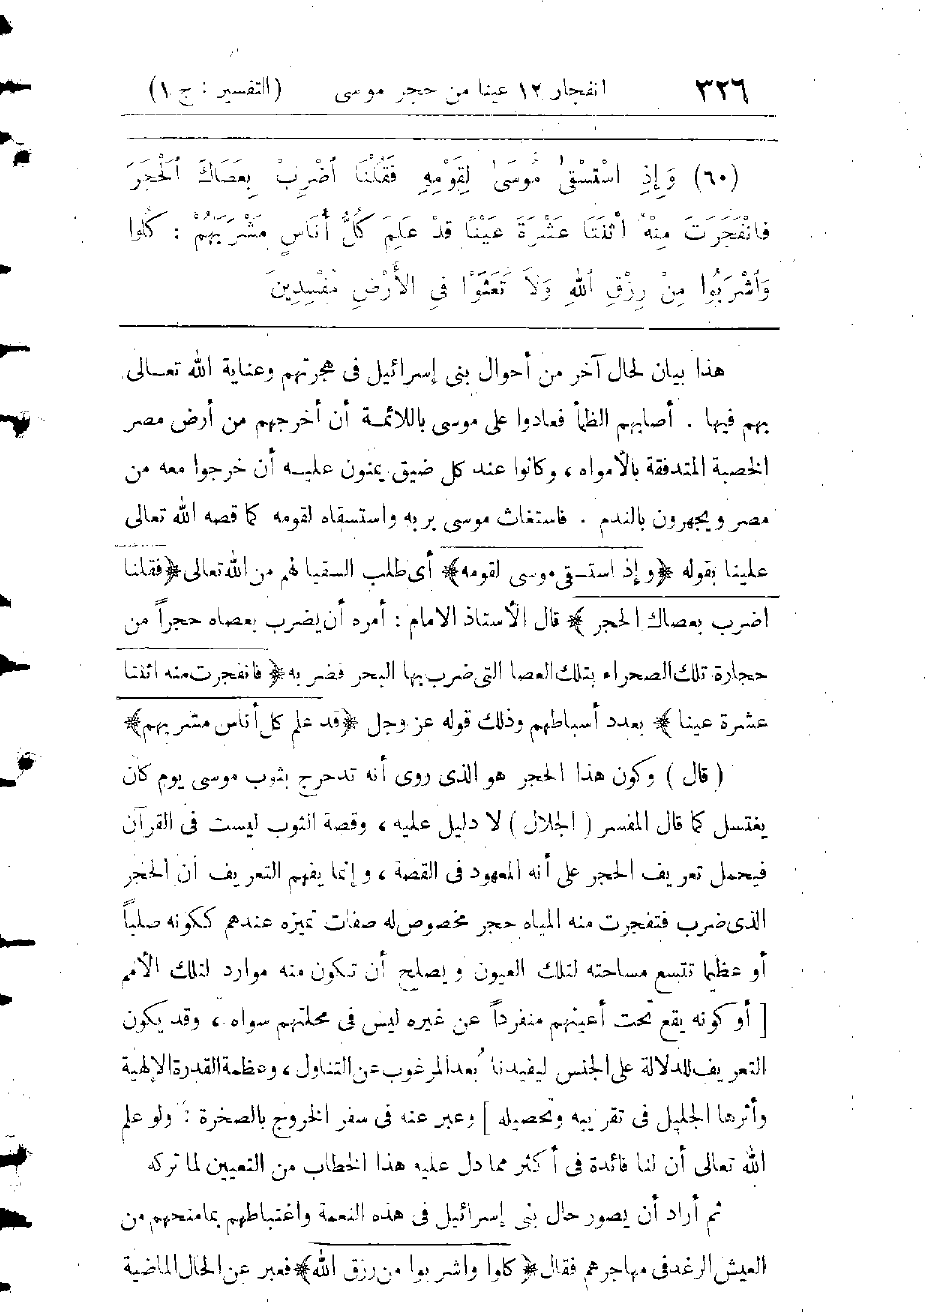 ٣٢٦ انفجار ١٢ عينا من حجر موسى (التفسير : ج ١)
(٦٠) وَإِذِ اسْتَسْقَىٰ مُوسَىٰ لِقَوْمِهِ فَقُلْنَا ٱضْرِبْ بِعَصَاكَ ٱلْحَجَرَ
فَانْفَجَرَتْ مِنْهُ ٱثْنَتَا عَشْرَةَ عَيْنًا قَدْ عَلِمَ كُلُّ أُنَاسٍ مَشْرَبَهُمْ : كُلُوا
وَٱشْرَبُوا مِنْ رِزْقِ ٱللهِ وَلاَ تَعْثَوْا فِي الْأَرْضِ مُفْسِدِينَ
هذا بيان لحال آخر من أحوال بنى إسرائيل فى هجرتهم وعناية الله تعـالى
بهم فيها . أصابهم الظمأ فعادوا على موسى باللائمـة أن أخرجهم من أرض مصر
الخصبة المتدفقة بالأمواه ، وكانوا عند كل ضيق يمنون عليـه أن خرجوا معه من
مصر ويجهرون بالندم . فاستغاث موسى بربه واستسقاه لقومه كما قصه الله تعالى
علينا بقوله ﴿وإذ استسقى موسى لقومه﴾ أى طلب السقيا لهم من الله تعالى ﴿فقلنا
اضرب بعصاك الحجر﴾ قال الأستاذ الامام : أمره أن يضرب بعصاه حجراً من
حجارة تلك الصحراء بتلك العصا التى ضرب بها البحر فضربه ﴿فانفجرت منه اثنتا
عشرة عينا﴾ بعدد أسباطهم وذلك قوله عز وجل ﴿قد علم كل أناس مشربهم﴾
( قال ) وكون هذا الحجر هو الذى روى أنه تدحرج بثوب موسى يوم كان
يغتسل كما قال المفسر ( الجلال ) لا دليل عليه ، وقصة الثوب ليست فى القرآن
فيحمل تعريف الحجر على أنه المعهود فى القصة ، وإنما يفهم التعريف أن الحجر
الذى ضرب فتفجرت منه المياه حجر مخصوص له صفات تميزه عندهم ككونه صلباً
أو عظيما تتسع مساحته لتلك العيون ويصلح أن تكون منه موارد لتلك الأمم
[ أو كونه يقع تحت أعينهم منفرداً عن غيره ليس فى محلتهم سواه ، وقد يكون
التعريف للدلالة على الجنس ليفيدنا بُعد المرغوب عن التناول ، وعظمة القدرة الإلهية
وأثرها الجليل فى تقريبه وتحصيله ] وعبر عنه فى سفر الخروج بالصخرة : ولو علم
الله تعالى أن لنا فائدة فى أكثر مما دل عليه هذا الخطاب من التعيين لما تركه
ثم أراد أن يصور حال بنى إسرائيل فى هذه النعمة واغتباطهم بما منحهم من
العيش الرغد فى مهاجرهم فقال ﴿كلوا واشربوا من رزق الله﴾ فعبر عن الحال الماضية